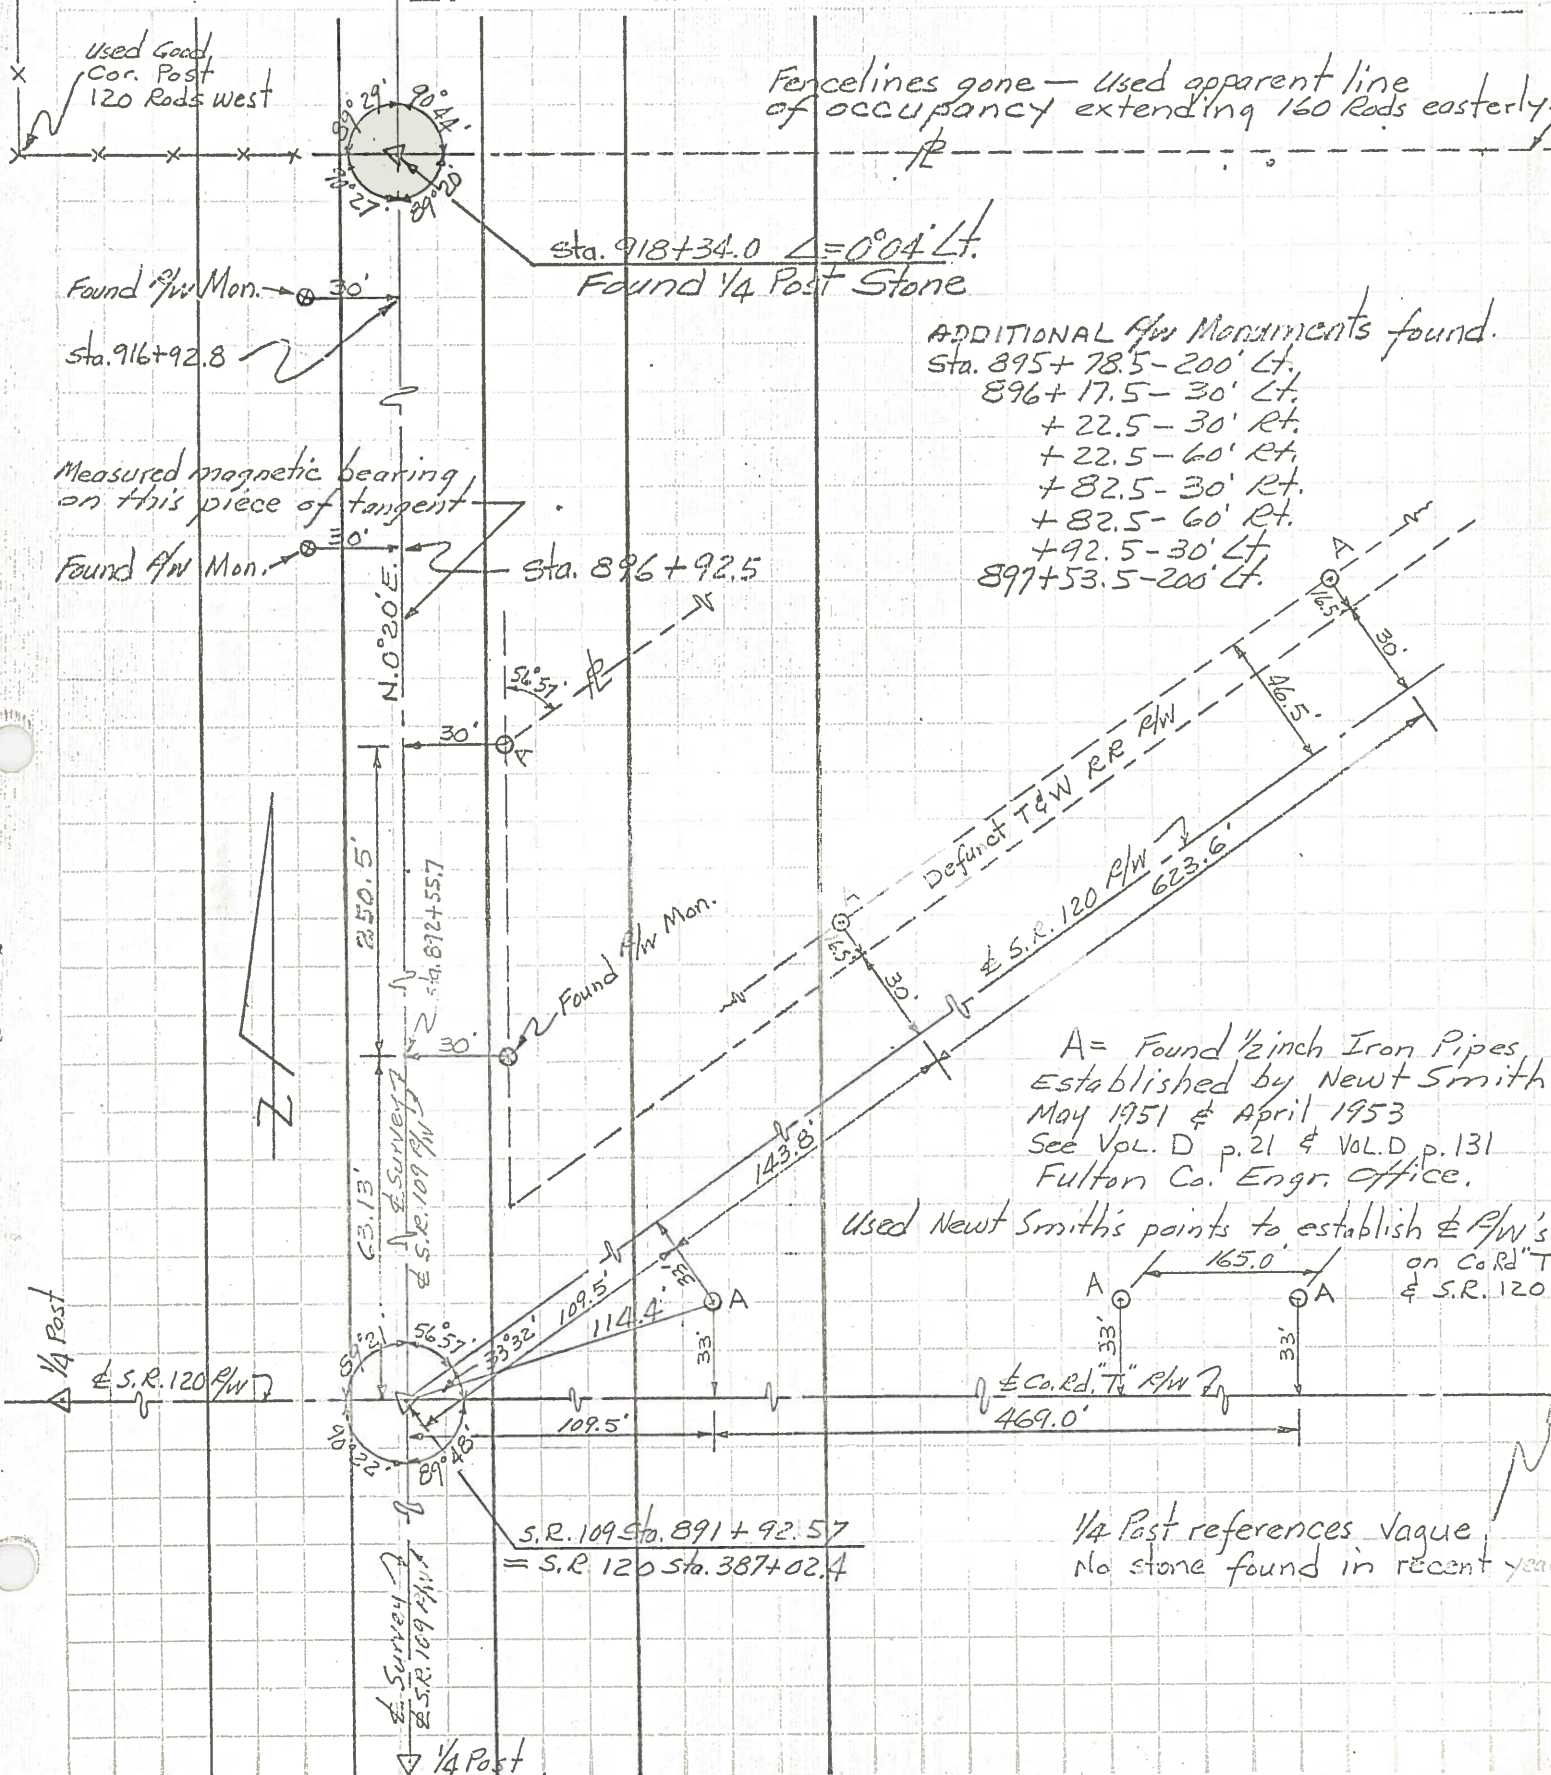 Used Good
Cor. Post
120 Rods west
89° 29'
90° 44'
90° 27'
89° 20'
Fencelines gone — Used apparent line
of occupancy extending 160 Rods easterly
PL
Sta. 918+34.0 ∠=0°04' Lt.
Found 1/4 Post Stone
Found R/W Mon.
30'
Sta. 916+92.8
ADDITIONAL R/W Monuments found.
Sta. 895+78.5-200' Lt.
896+17.5-30' Lt.
+22.5-30' Rt.
+22.5-60' Rt.
+82.5-30' Rt.
+82.5-60' Rt.
+92.5-30' Lt.
897+53.5-200' Lt.
Measured magnetic bearing
on this piece of tangent
Found R/W Mon.
30'
Sta. 896+92.5
N.0°20'E.
56°57'
PL
30'
A
A
16.5'
30'
46.5'
Defunct T&W RR R/W
℄ S.R. 120 R/W
623.6'
250.5'
Sta. 892+55.7
Found R/W Mon.
30'
16.5'
30'
N
A= Found 1/2 inch Iron Pipes
Established by Newt Smith
May 1951 & April 1953
See VOL. D p.21 & VOL. D p.131
Fulton Co. Engr. Office.
Used Newt Smith's points to establish ℄ R/W's
on Co Rd "T
& S.R. 120
63.13'
℄ Survey
℄ S.R. 109 R/W
143.8'
109.5'
33'
114.4'
A
33'
A
165.0'
A
33'
33'
1/4 Post
℄ S.R. 120 R/W
89°21'
56°57'
33°32'
90°22'
89°48'
℄ Co. Rd. "T" R/W
109.5'
469.0'
S.R. 109 Sta. 891+92.57
= S.R. 120 Sta. 387+02.4
1/4 Post references vague
No stone found in recent
℄ Survey
℄ S.R. 109 R/W
1/4 Post